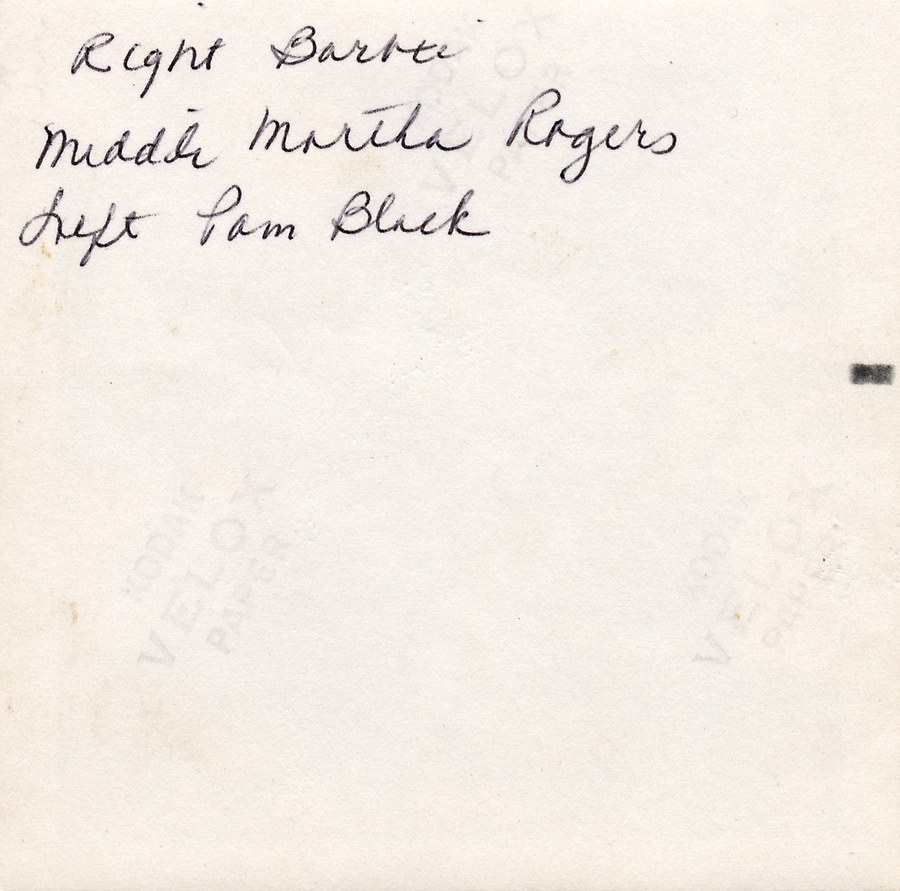 Right Barbie
Middle Martha Rogers
Left Pam Black
KODAK
VELOX
PAPER
KODAK
VELOX
PAPER
KODAK
VELOX
PAPER